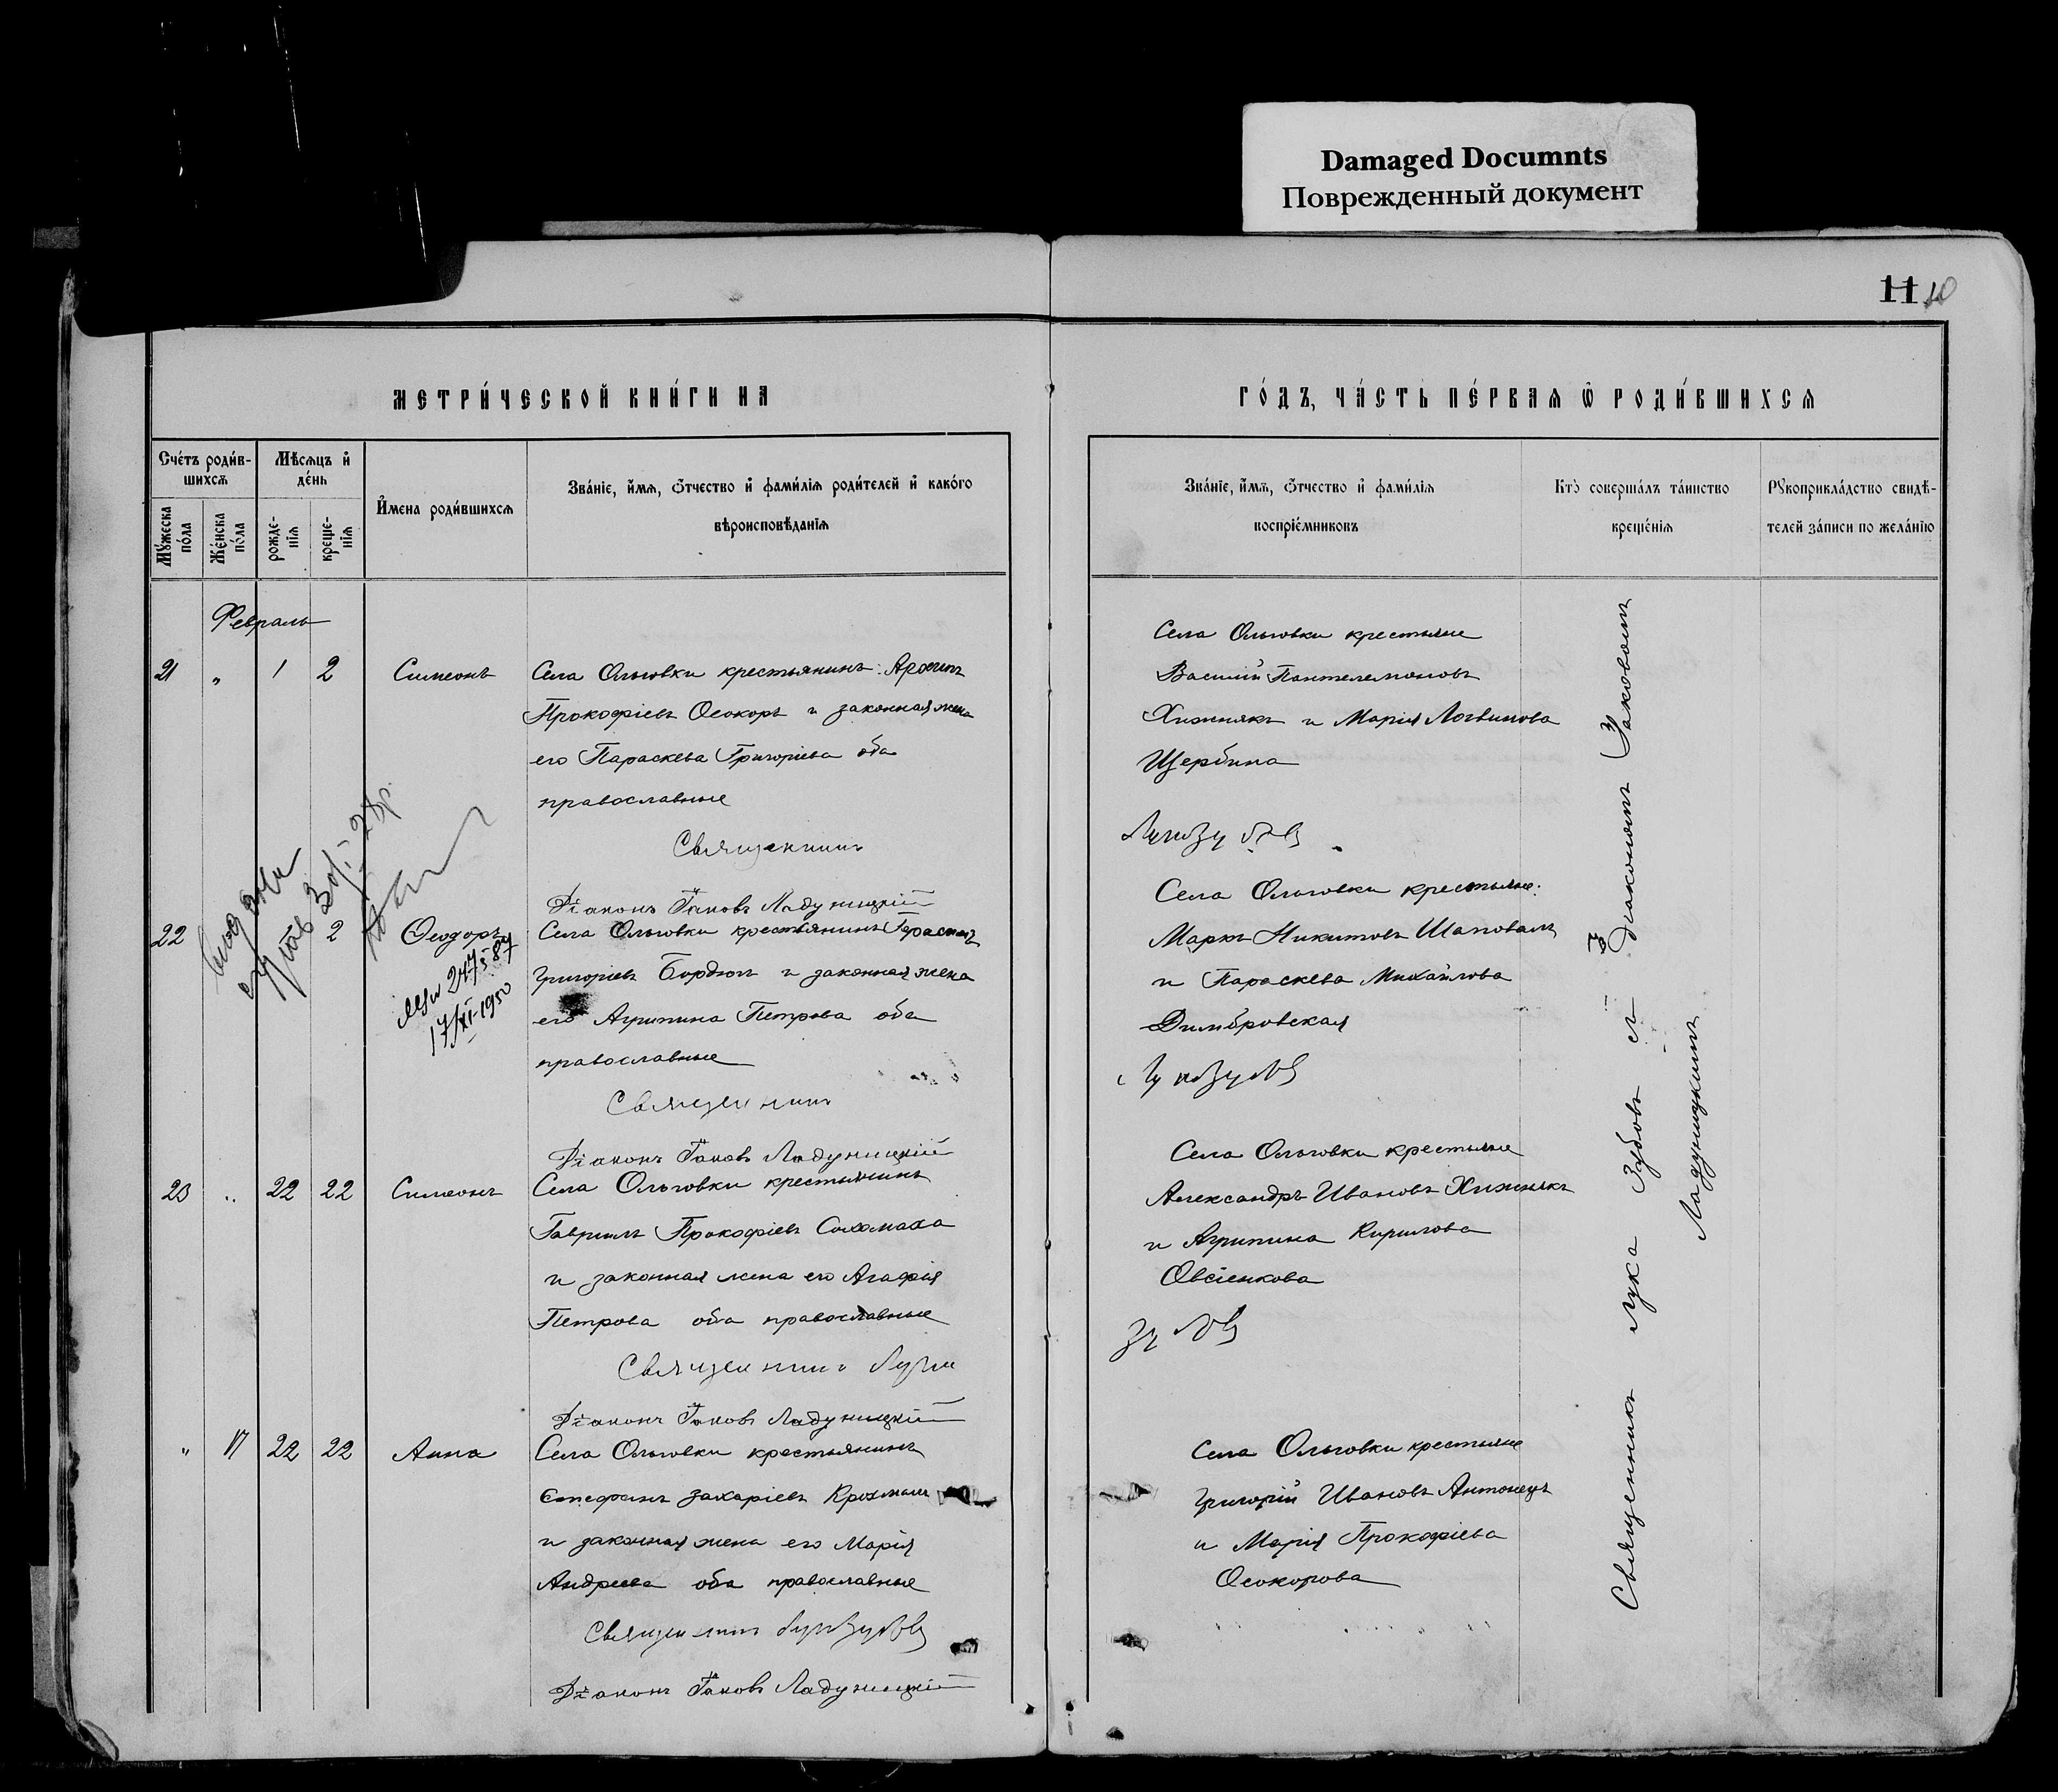 Damaged Documnts
Поврежденный документ
11 10
МЕТРИ́ЧЕСКОЙ КНИ́ГИ НА
ГО́ДЪ, ЧА́СТЬ ПЕ́РВАЯ Ѿ РОДИ́ВШИХСЯ
Сче́тъ роди́в-
шихся
Мѣ́сяцъ и҆
де́нь
Му́жеска
по́ла
Же́нска
по́ла
рожде-
нія
креще-
нія
И҆́мена роди́вшихся
Зва́ніе, и҆́мя, ѻ҆́тчество и҆ фами́лія роди́телей и҆ како́го
вѣроисповѣ́данія
Зва́ніе, и҆́мя, ѻ҆́тчество и҆ фами́лія
воспріе́мниковъ
Кто̀ соверша́лъ та́инство
креще́нія
Рꙋкоприкла́дство свидѣ́-
телей за́писи по жела́нію
Февраль
21 " 1 2 Симеонъ
Села Ольговки крестьянинъ Архипъ
Прокофіевъ Осокоръ и законная жена
его Параскева Григоріева оба
православные
Священникъ
Діаконъ Іаковъ Ладуницкій
Села Ольговки крестьяне
Василій Пантелемоновъ
Хижнякъ и Марія Логвинова
Щербина
22 2 Ѳеодоръ
17/XI-1950
Села Ольговки крестьянинъ Герасимъ
Григоріевъ Бордюгъ и законная жена
его Агрипина Петрова оба
православные
Священникъ
Діаконъ Іаковъ Ладуницкій
Села Ольговки крестьяне:
Маркъ Никитовъ Шаповалъ
и Параскева Михайлова
Димбровская
23 " 22 22 Симеонъ
Села Ольговки крестьянинъ
Гавриилъ Прокофіевъ Соломаха
и законная жена его Агафія
Петрова оба православные
Священникъ Лука
Діаконъ Іаковъ Ладуницкій
Села Ольговки крестьяне
Александръ Ивановъ Хижнякъ
и Агрипина Кирилова
Овсіенкова
" 17 22 22 Анна
Села Ольговки крестьянинъ
Стефанъ Захаріевъ Крохмаль
и законная жена его Марія
Андреева оба православные
Священникъ Лука Зубовъ
Діаконъ Іаковъ Ладуницкій
Села Ольговки крестьяне
Григорій Ивановъ Антонецъ
и Марія Прокофіева
Осокорова
Священникъ Лука Зубовъ съ Діакономъ Іаковомъ
Ладуницкимъ